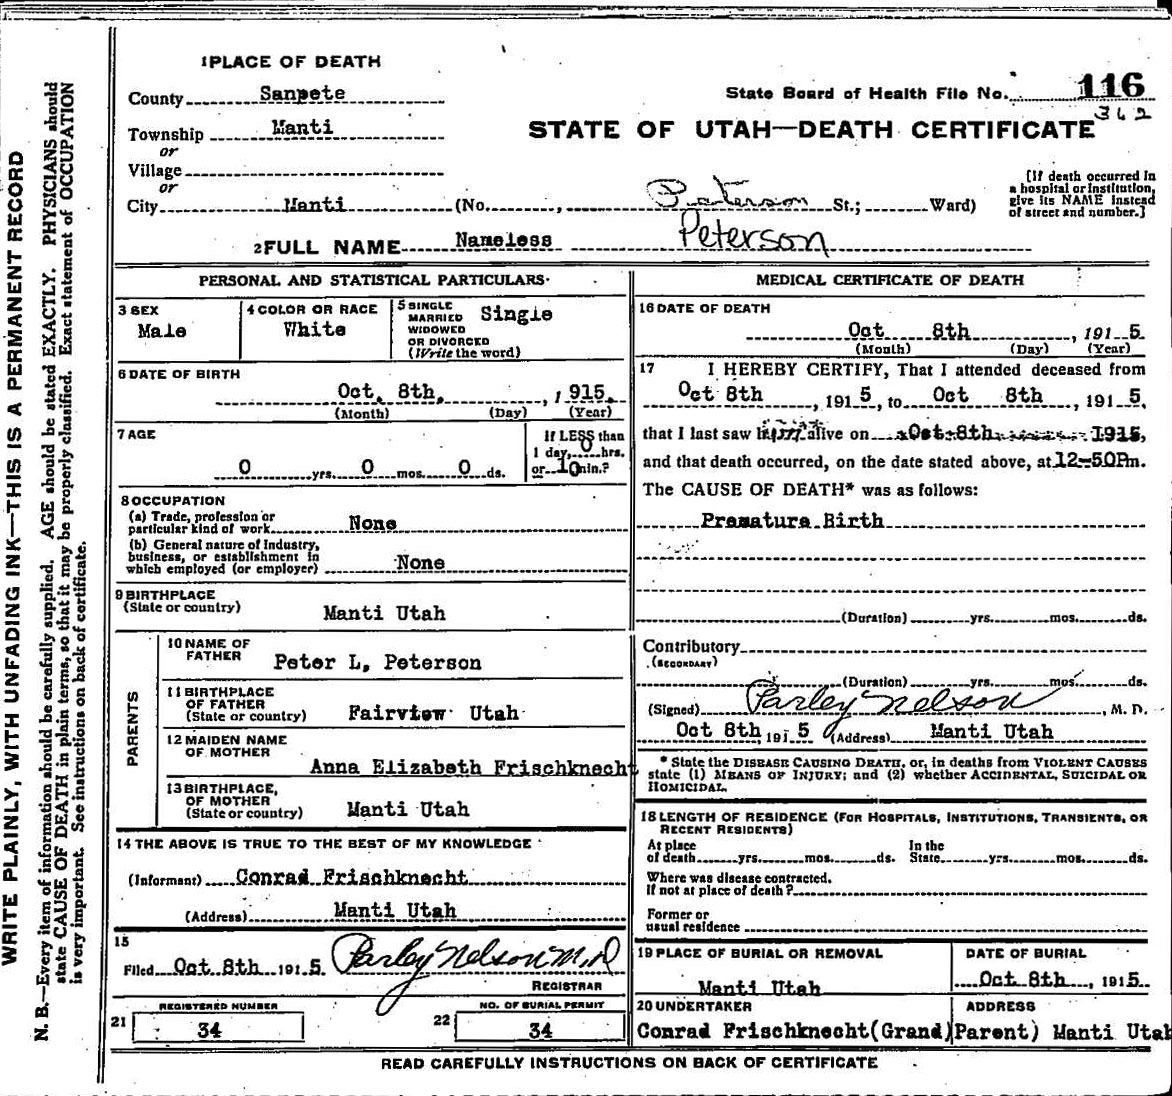 WRITE PLAINLY, WITH UNFADING INK—THIS IS A PERMANENT RECORD
N. B.—Every item of information should be carefully supplied. AGE should be stated EXACTLY. PHYSICIANS should
state CAUSE OF DEATH in plain terms, so that it may be properly classified. Exact statement of OCCUPATION
is very important. See instructions on back of certificate.
1 PLACE OF DEATH
County Sanpete
State Board of Health File No. 116
362
Township Manti
STATE OF UTAH—DEATH CERTIFICATE
or
Village
or
City Manti (No. , Peterson St.; Ward)
[If death occurred in
a hospital or institution,
give its NAME instead
of street and number.]
2 FULL NAME Nameless Peterson
PERSONAL AND STATISTICAL PARTICULARS
3 SEX
Male
4 COLOR OR RACE
White
5 SINGLE
MARRIED
WIDOWED
OR DIVORCED
(Write the word)
Single
6 DATE OF BIRTH
Oct. 8th. , 1915.
(Month) (Day) (Year)
7 AGE
0 yrs. 0 mos. 0 ds.
If LESS than
1 day, 0 hrs.
or 10 min.?
8 OCCUPATION
(a) Trade, profession or
particular kind of work None
(b) General nature of Industry,
business, or establishment in
which employed (or employer) None
9 BIRTHPLACE
(State or country)
Manti Utah
PARENTS
10 NAME OF
FATHER
Peter L. Peterson
11 BIRTHPLACE
OF FATHER
(State or country) Fairview Utah
12 MAIDEN NAME
OF MOTHER
Anna Elizabeth Frischknecht
13 BIRTHPLACE,
OF MOTHER
(State or country) Manti Utah
14 THE ABOVE IS TRUE TO THE BEST OF MY KNOWLEDGE
(Informant) Conrad Frischknecht
(Address) Manti Utah
15
Filed Oct 8th 1915 Parley Nelson M.D
REGISTRAR
21 REGISTERED NUMBER
34
22 NO. OF BURIAL PERMIT
34
MEDICAL CERTIFICATE OF DEATH
16 DATE OF DEATH
Oct 8th , 1915
(Month) (Day) (Year)
17 I HEREBY CERTIFY, That I attended deceased from
Oct 8th , 1915, to Oct 8th , 1915,
that I last saw alive on Oct 8th 1915,
and that death occurred, on the date stated above, at 12-50Pm.
The CAUSE OF DEATH* was as follows:
Premature Birth
(Duration) yrs. mos. ds.
Contributory
(SECONDARY)
(Duration) yrs. mos. ds.
(Signed) Parley Nelson , M. D.
Oct 8th, 1915 (Address) Manti Utah
* State the DISEASE CAUSING DEATH, or, in deaths from VIOLENT CAUSES
state (1) MEANS OF INJURY; and (2) whether ACCIDENTAL, SUICIDAL OR
HOMICIDAL.
18 LENGTH OF RESIDENCE (FOR HOSPITALS, INSTITUTIONS, TRANSIENTS, OR
RECENT RESIDENTS)
At place In the
of death yrs. mos. ds. State yrs. mos. ds.
Where was disease contracted,
If not at place of death?
Former or
usual residence
19 PLACE OF BURIAL OR REMOVAL
Manti Utah
DATE OF BURIAL
Oct 8th , 1915
20 UNDERTAKER ADDRESS
Conrad Frischknecht(Grand Parent) Manti Utah
READ CAREFULLY INSTRUCTIONS ON BACK OF CERTIFICATE